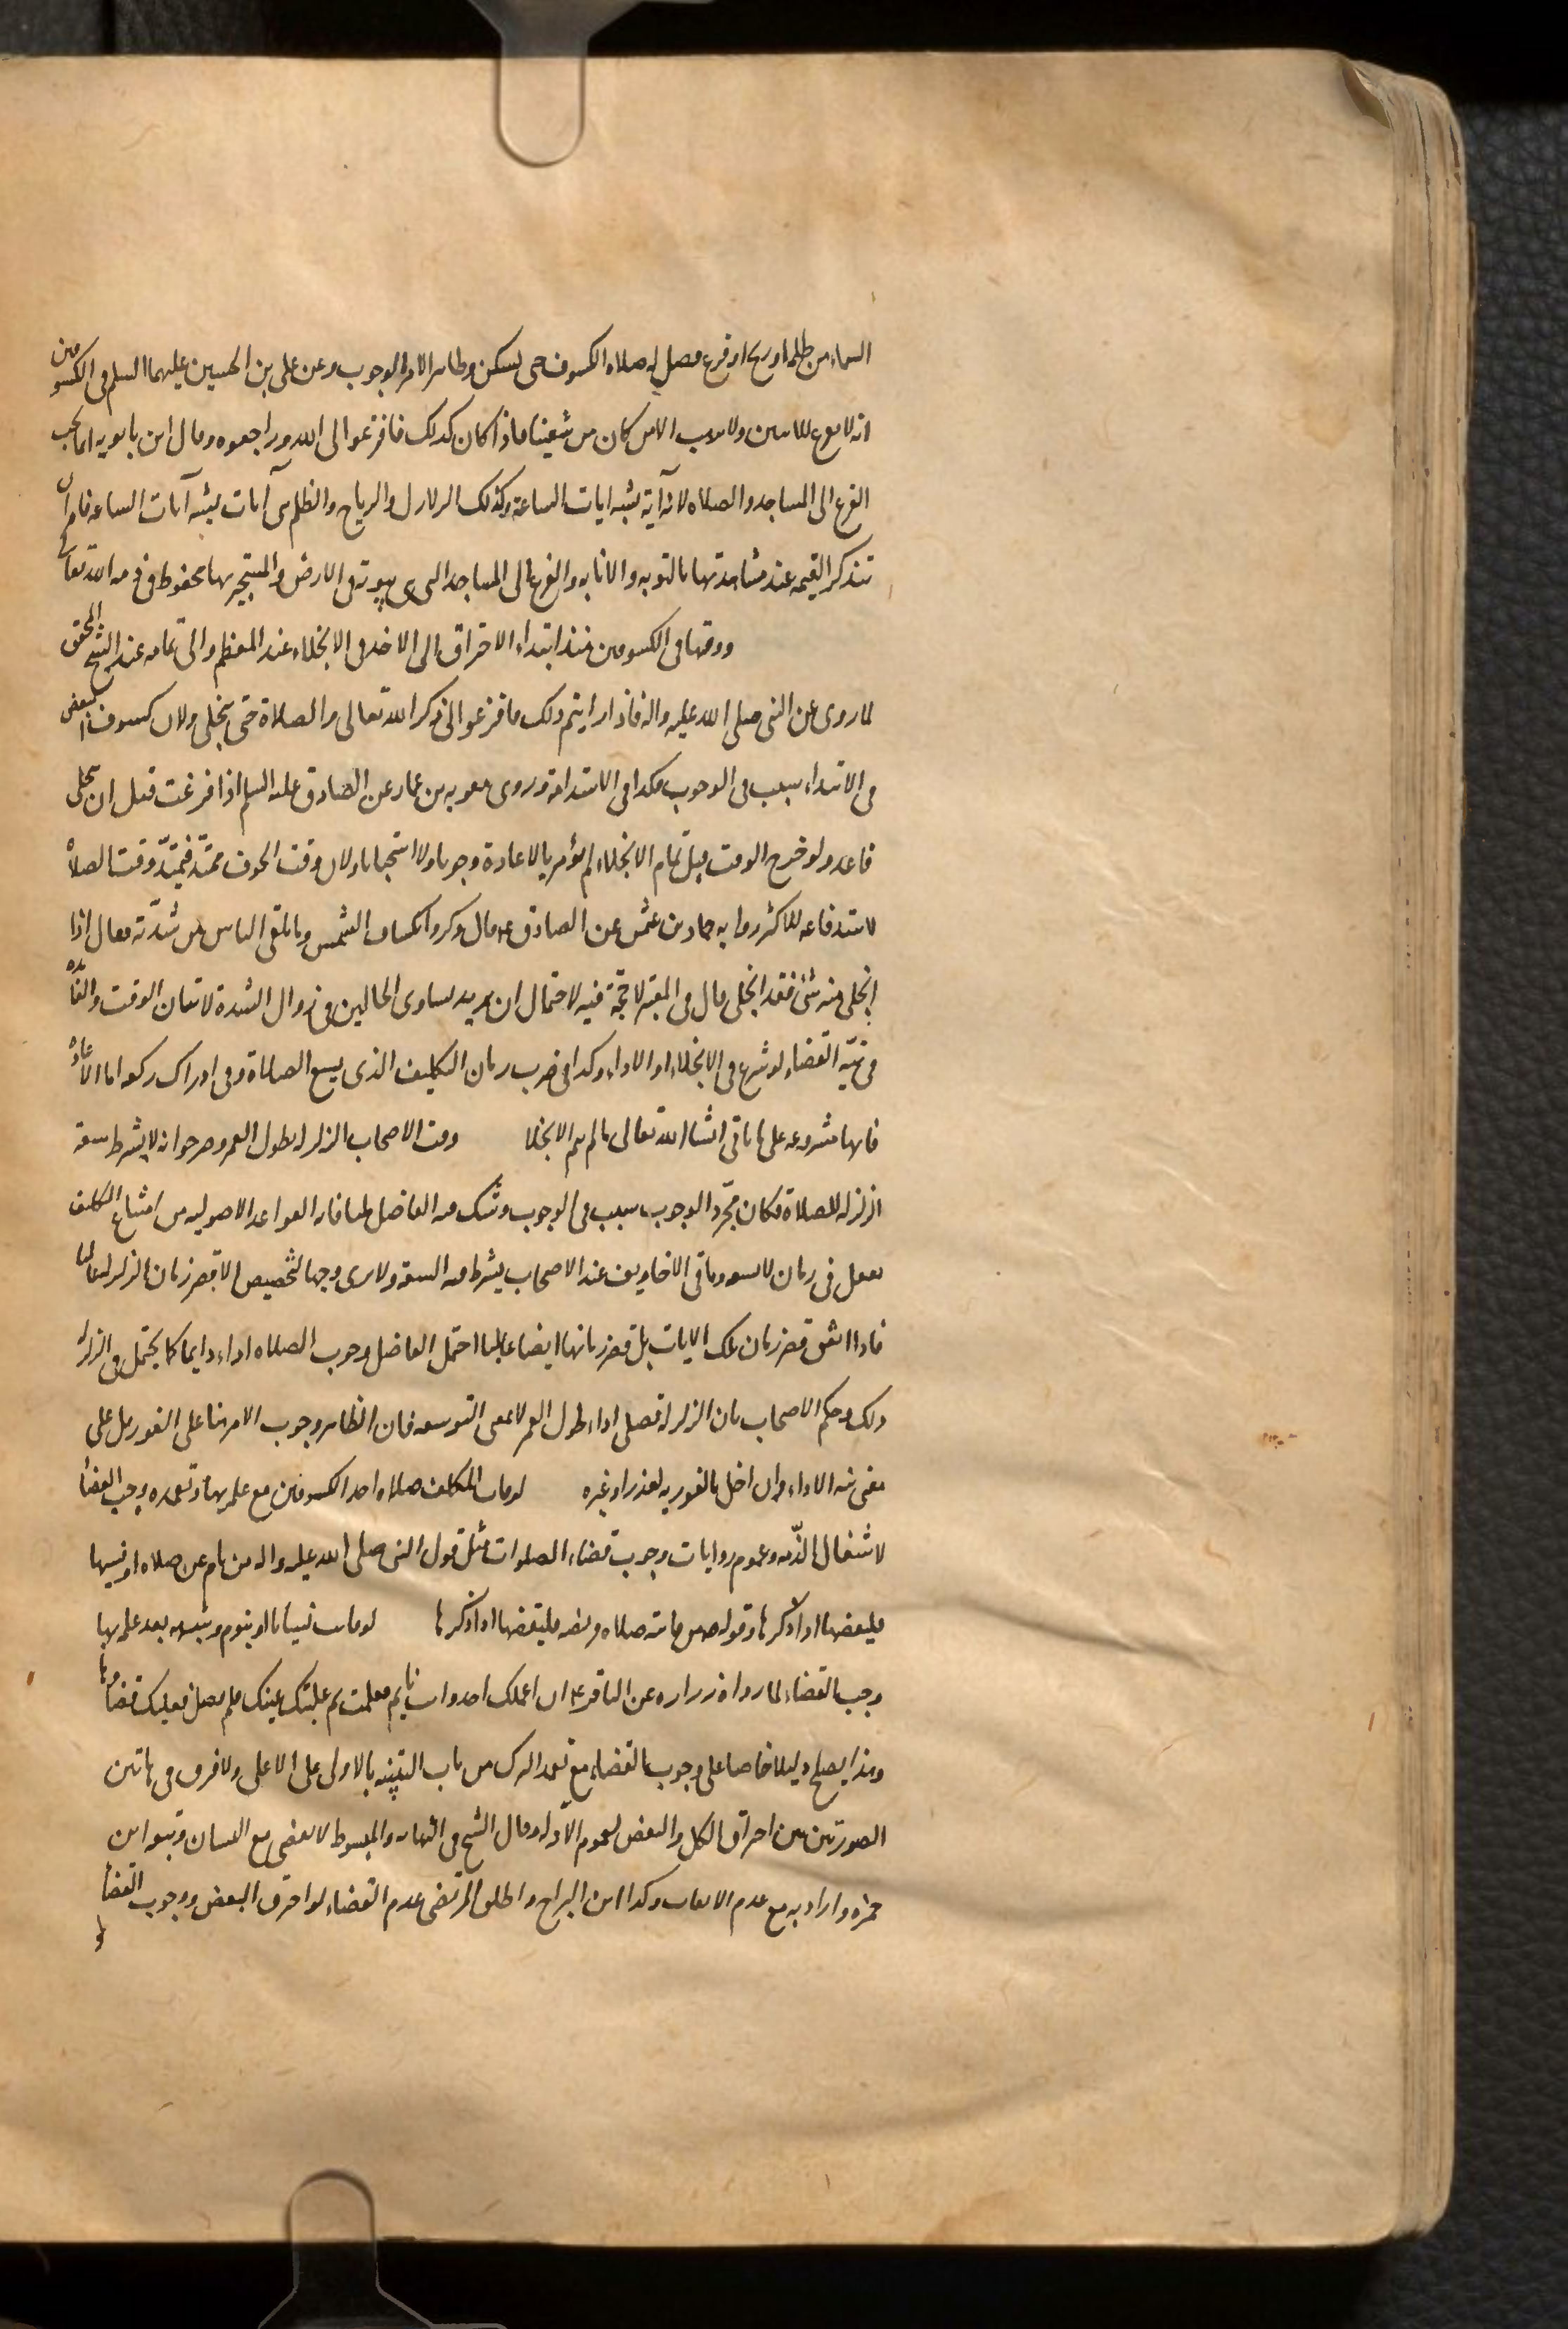 السماء من ظلمة او ريح او فزع فصل له صلاة الكسوف حتى يسكن وظاهر الامر الوجوب وعن علي بن الحسين عليهما السلم في الكسوفين
انه لا يفزع للايتين ولا يرهب الا من كان من شيعتنا فاذا كان كذلك فافزعوا الى الله وراجعوه وقال ابن بابويه انما يجب
الفزع الى المساجد والصلاة لانه آية يشبه ايات الساعة وكذلك الزلازل والرياح والظلم هي آيات يشبه آيات الساعة فامر ان
تتذكر القيمة عند مشاهدتها بالتوبة والانابة والفزع الى المساجد التي هي بيوته في الارض والمستجير بها محفوظ في ذمة الله تعالى
ووقتها في الكسوفين منذ ابتداء الاحتراق الى الاخذ في الانجلاء عند المعظم والى تمامه عند الشيخ المحقق
لما روى عن النبي صلى الله عليه واله فاذا رايتم ذلك فافزعوا الى ذكر الله تعالى والصلاة حتى ينجلي ولان كسوف البعض
في الابتداء سبب في الوجوب فكذا في الاستدامة وروى معوية بن عمار عن الصادق عليه السلم اذا فرغت قبل ان ينجلي
فاعد ولو خرج الوقت قبل تمام الانجلاء لم يؤمر بالاعادة وجوبا ولا استحبابا ولان وقت الخوف ممتد فيمتد وقت الصلاة
لاستدفاعه للاكثر رواية حماد بن عثمن عن الصادق ع قال ذكروا انكساف الشمس وما يلقى الناس من شدته فقال اذا
انجلى منه شئ فقد انجلى قال في المعتبر لا حجة فيه لاحتمال ان يريد تساوي الحالين في زوال الشدة لا بيان الوقت والفائدة
في نية القضاء لو شرع في الانجلاء او الاداء وكذا في ضرب زمان التكليف الذي يسع الصلاة وفي ادراك ركعة اما الاعادة
فانها مشروعة على ما ياتي انشا الله تعالى ما لم يتم الانجلا وقت الاصحاب الزلزلة بطول العمر وصرحوا انه لا يشترط سعة
الزلزلة للصلاة فكان مجرد الوجوب سبب في الوجوب وشك فيه الفاضل لمنافاته القواعد الاصولية من امتناع التكليف
بفعل في زمان لا يسعه وباقي الاخاويف عند الاصحاب يشترط فيه السعة ولا نرى وجها لتخصيص الا قصر زمان الزلزلة غالبا
فاذا اتفق قصر زمان تلك الايات بل قصر زمانها ايضا غالبا احتمل الفاضل وجوب الصلاة اداء دايما كما يحتمل في الزلزلة
ذلك وحكم الاصحاب بان الزلزلة تصلى اداء طول العمر لا بمعنى التوسعة فان الظاهر وجوب الامر هنا على الفور بل على
معنى نية الاداء وان اخل بالفورية لعذر او غيره لو فات المكلف صلاة احد الكسوفين مع علمه بها وتعمده وجب القضأ
لاشتغال الذمة وعموم روايات وجوب قضاء الصلوات مثل قول النبي صلى الله عليه واله من نام عن صلاة او نسيها
فليقضها اذا ذكرها وقوله ص من فاتته صلاة فريضة فليقضها اذا ذكرها لو فاتت نسيانا او بنوم وشبهه بعد علمه بها
وجب القضاء لما رواه زرارة عن الباقر ع ان اعلمك احد وانت نايم فعلمت ثم غلبتك عينك فلم تصل فعليك قضاؤها
وهذا يصلح دليلا خاصا على وجوب القضاء مع تعمد الترك من باب التنبيه بالاولى على الاعلى ولا فرق في هاتين
الصورتين بين احتراق الكل والبعض لعموم الادلة وقال الشيخ في النهاية والمبسوط لا يقضي مع النسيان وتبعه ابن
حمزة واراد به مع عدم الايعاب وكذا ابن البراج واطلق المرتضى عدم القضاء لو احترق البعض ووجوب القضأ
لو